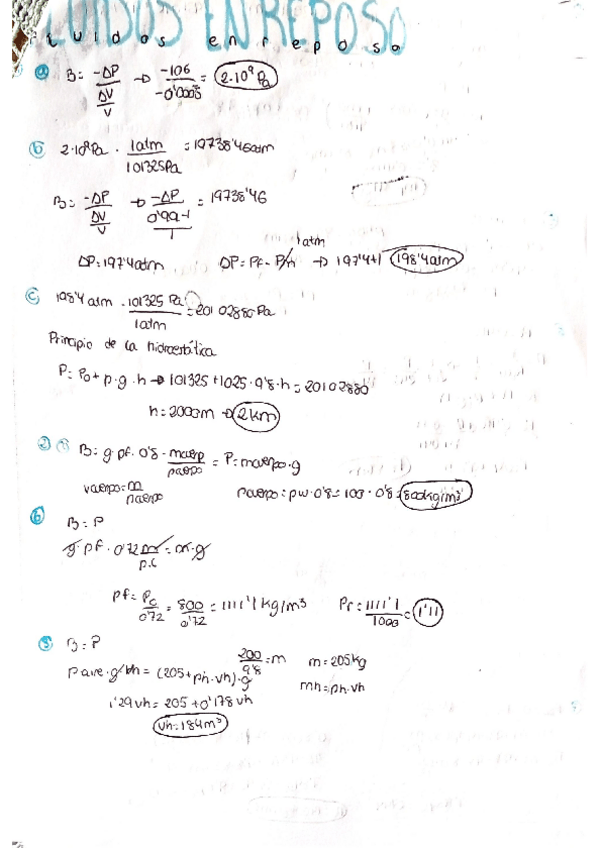 FLUIDOS EN REPOSO
Fluidos en reposo
a) B = -ΔP / (ΔV/V) → -106 / -0'0005 = 2·10⁹ Pa
b) 2·10⁹ Pa · 1atm / 101325Pa = 19738'46atm
B = -ΔP / (ΔV/V) → -ΔP / ((0'99-1)/1) = 19738'46
ΔP = 197'4atm ΔP = Pf - Pin 1atm → 197'4+1 198'4atm
c) 198'4 atm · 101325 Pa / 1atm = 20102880 Pa
Principio de la hidroestática
P = P0 + ρ·g·h → 101325 + 1025·9'8·h = 20102880
h = 2000m → 2km
2) B = g·ρf·0'8· mcuerp / ρcuerpo = P = mcuerpo·g
Vcuerpo = m / ρcuerpo ρcuerpo = ρw·0'8 = 100·0'8 = 800kg/m³
b) B = P
g·ρf·0'72 m / ρ.c = m·g
ρf = ρc / 0'72 = 800 / 0'72 = 1111'1 kg/m³ ρr = 1111'1 / 1000 = 1'11
B = P 200 / 9'8 = m m = 205kg
ρaire·g·Vh = (205 + ρh·Vh)·g mh = ρh·Vh
1'29Vh = 205 + 0'178Vh
Vh = 184m³